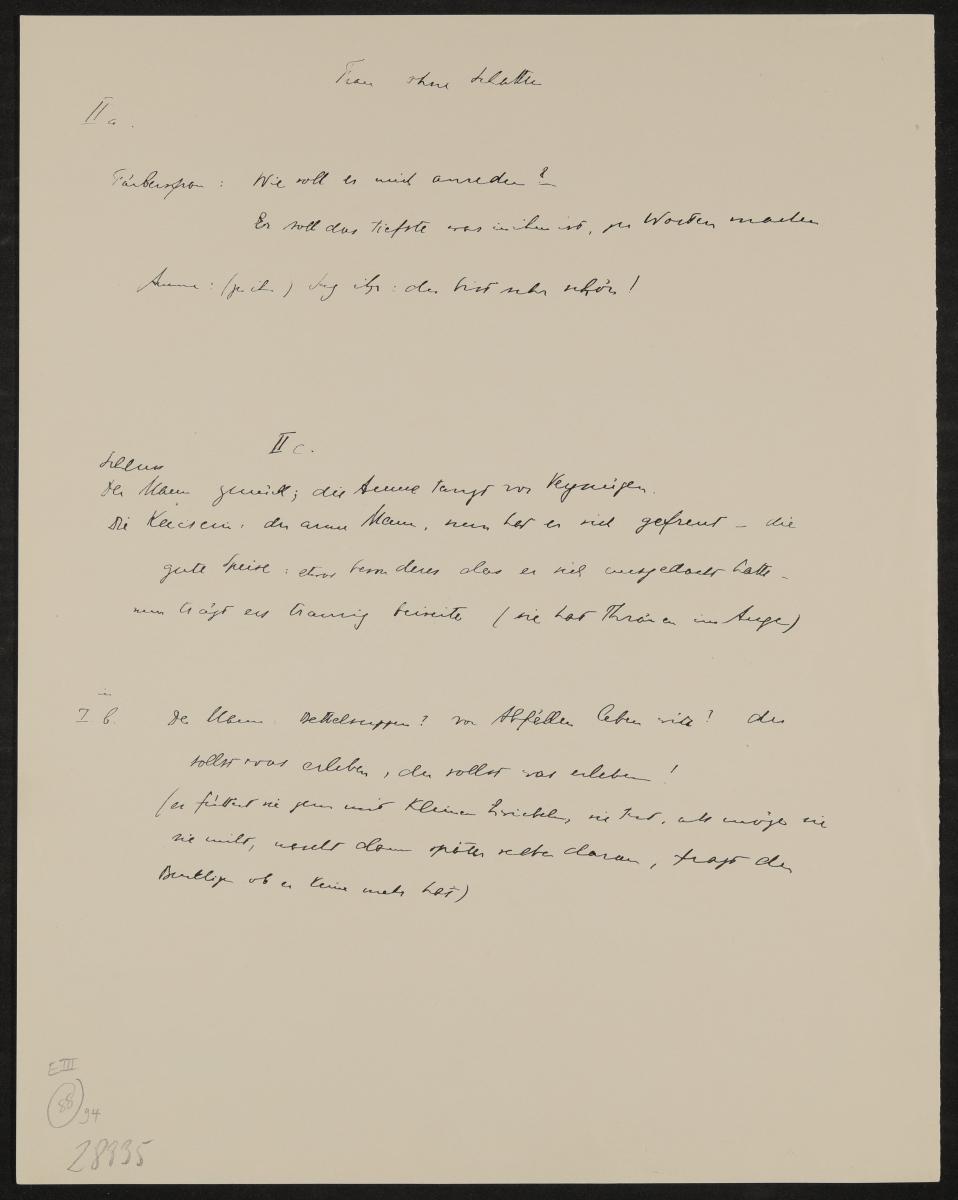 Frau ohne Schatten
II a.
Färbersfrau: Wie soll er mich anreden?
Er soll das tiefste was in ihm ist, zu Worten machen
Amme: (zu ihm) sag ihr: du bist sehr schön!
II c.
Schluss
Der Mann zurück; die Amme tanzt vor Vergnügen.
Die Kaiserin: der arme Mann, nun hat er sich gefreut – die
gute Speise: etwas besonderes das er sich ausgedacht hatte –
nun trägt ers traurig beiseite (sie hat Thränen im Auge)
in
I b. Der Mann Bettelsuppen? von Abfällen leben ? du
sollst was erleben, du sollst was erleben!
(er füttert sie gern mit kleinen Zwiebeln, sie tut, als möge sie
sie nicht, nascht dann später selber daran, fragt den
Buckligen ob er keine mehr hat)
EIII
88
94
28935